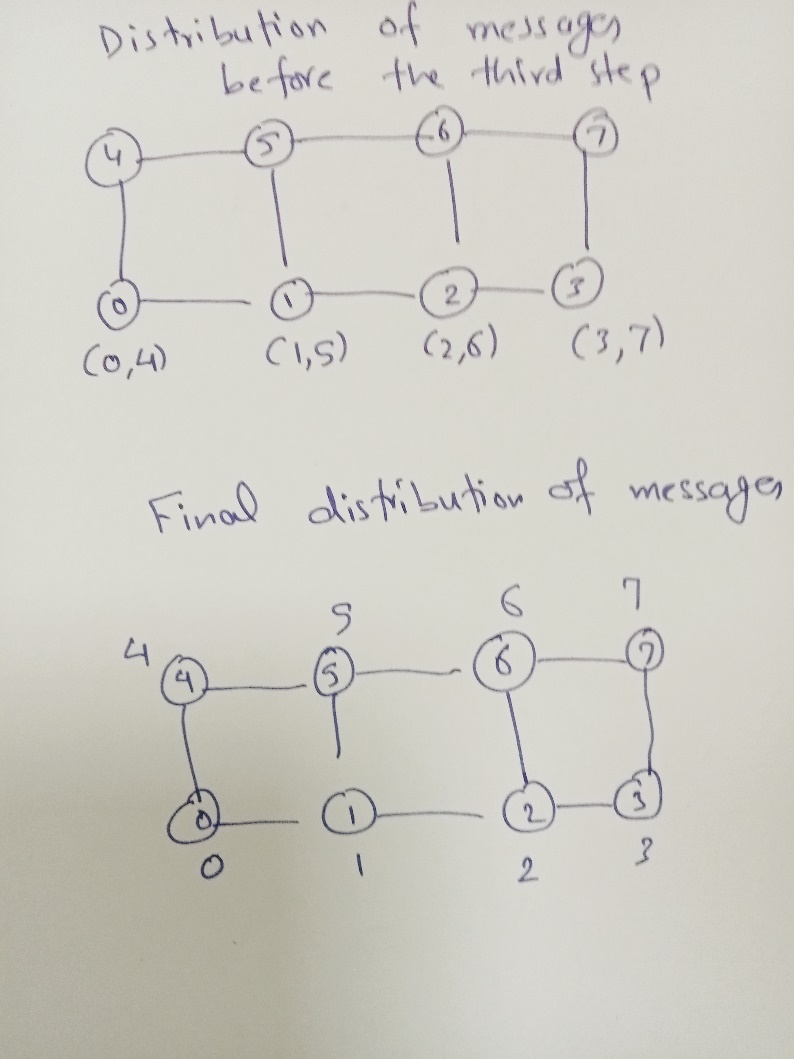 Distribution of messages
before the third step
4 5 6 7
0 1 2 3
(0,4) (1,5) (2,6) (3,7)
Final distribution of messages
4 5 6 7
4 5 6 7
0 1 2 3
0 1 2 3